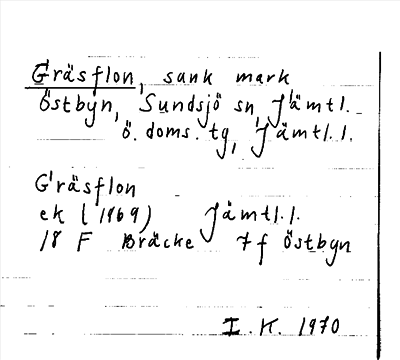 Gräsflon, sank mark
Östbyn, Sundsjö sn, Jämtl.
ö. doms. tg, Jämtl. l.
Gräsflon
ek (1969) Jämtl. l.
18 F Bräcke 7f Östbyn
I. K. 1970